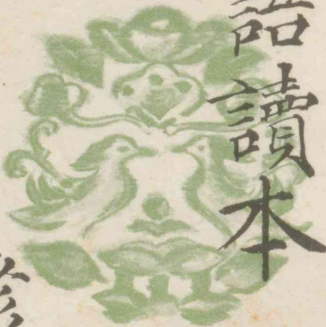 語讀本